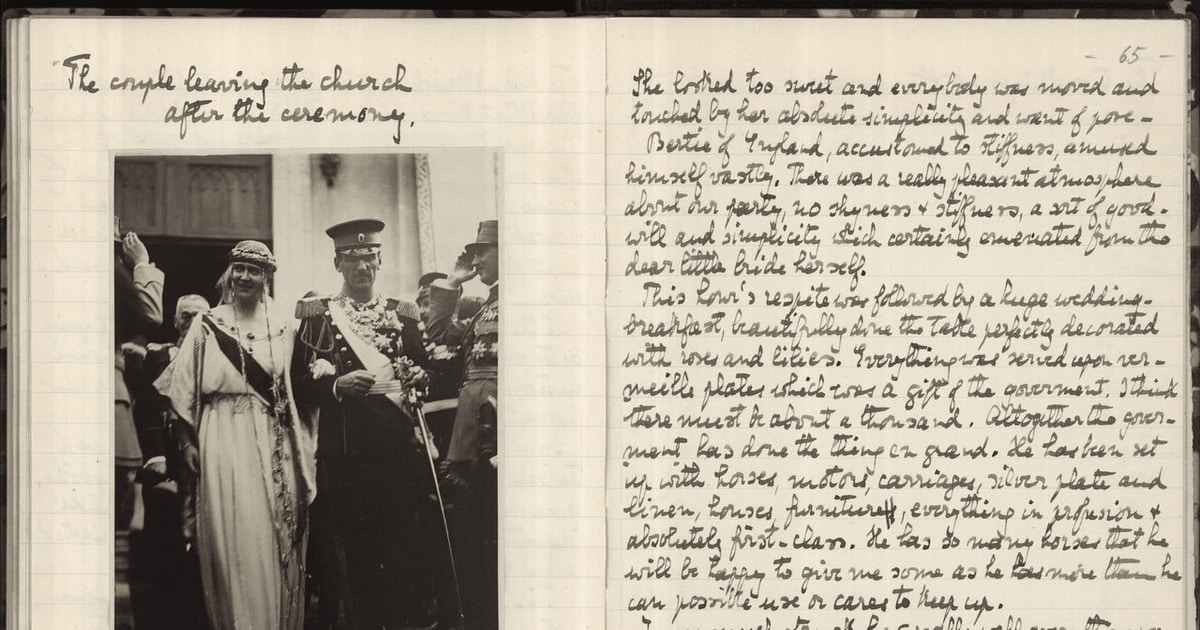 The couple leaving the church
after the ceremony.
- 65 -
She looked too sweet and everybody was moved and
touched by her absolute simplicity and want of pose -
Bertie of England, accustomed to stiffness, amused
himself vastly. There was a really pleasant atmosphere
about our party, no shyness & stiffness, a sort of good-
will and simplicity which certainly emenated from the
dear little bride herself.
This hour's respite was followed by a huge wedding-
breakfast, beautifully done the table perfectly decorated
with roses and lilies. Everything was served upon ver-
meille plates which was a gift of the goverment. I think
there must be about a thousand. Altogether the gover-
ment has done the thing en grand. He has been set
up with horses, motors, carriages, silver plate and
linen, houses, furniture, everything in profusion &
absolutely first-class. He has so many horses that he
will be happy to give me some as he has more than he
can possible use or cares to keep up.